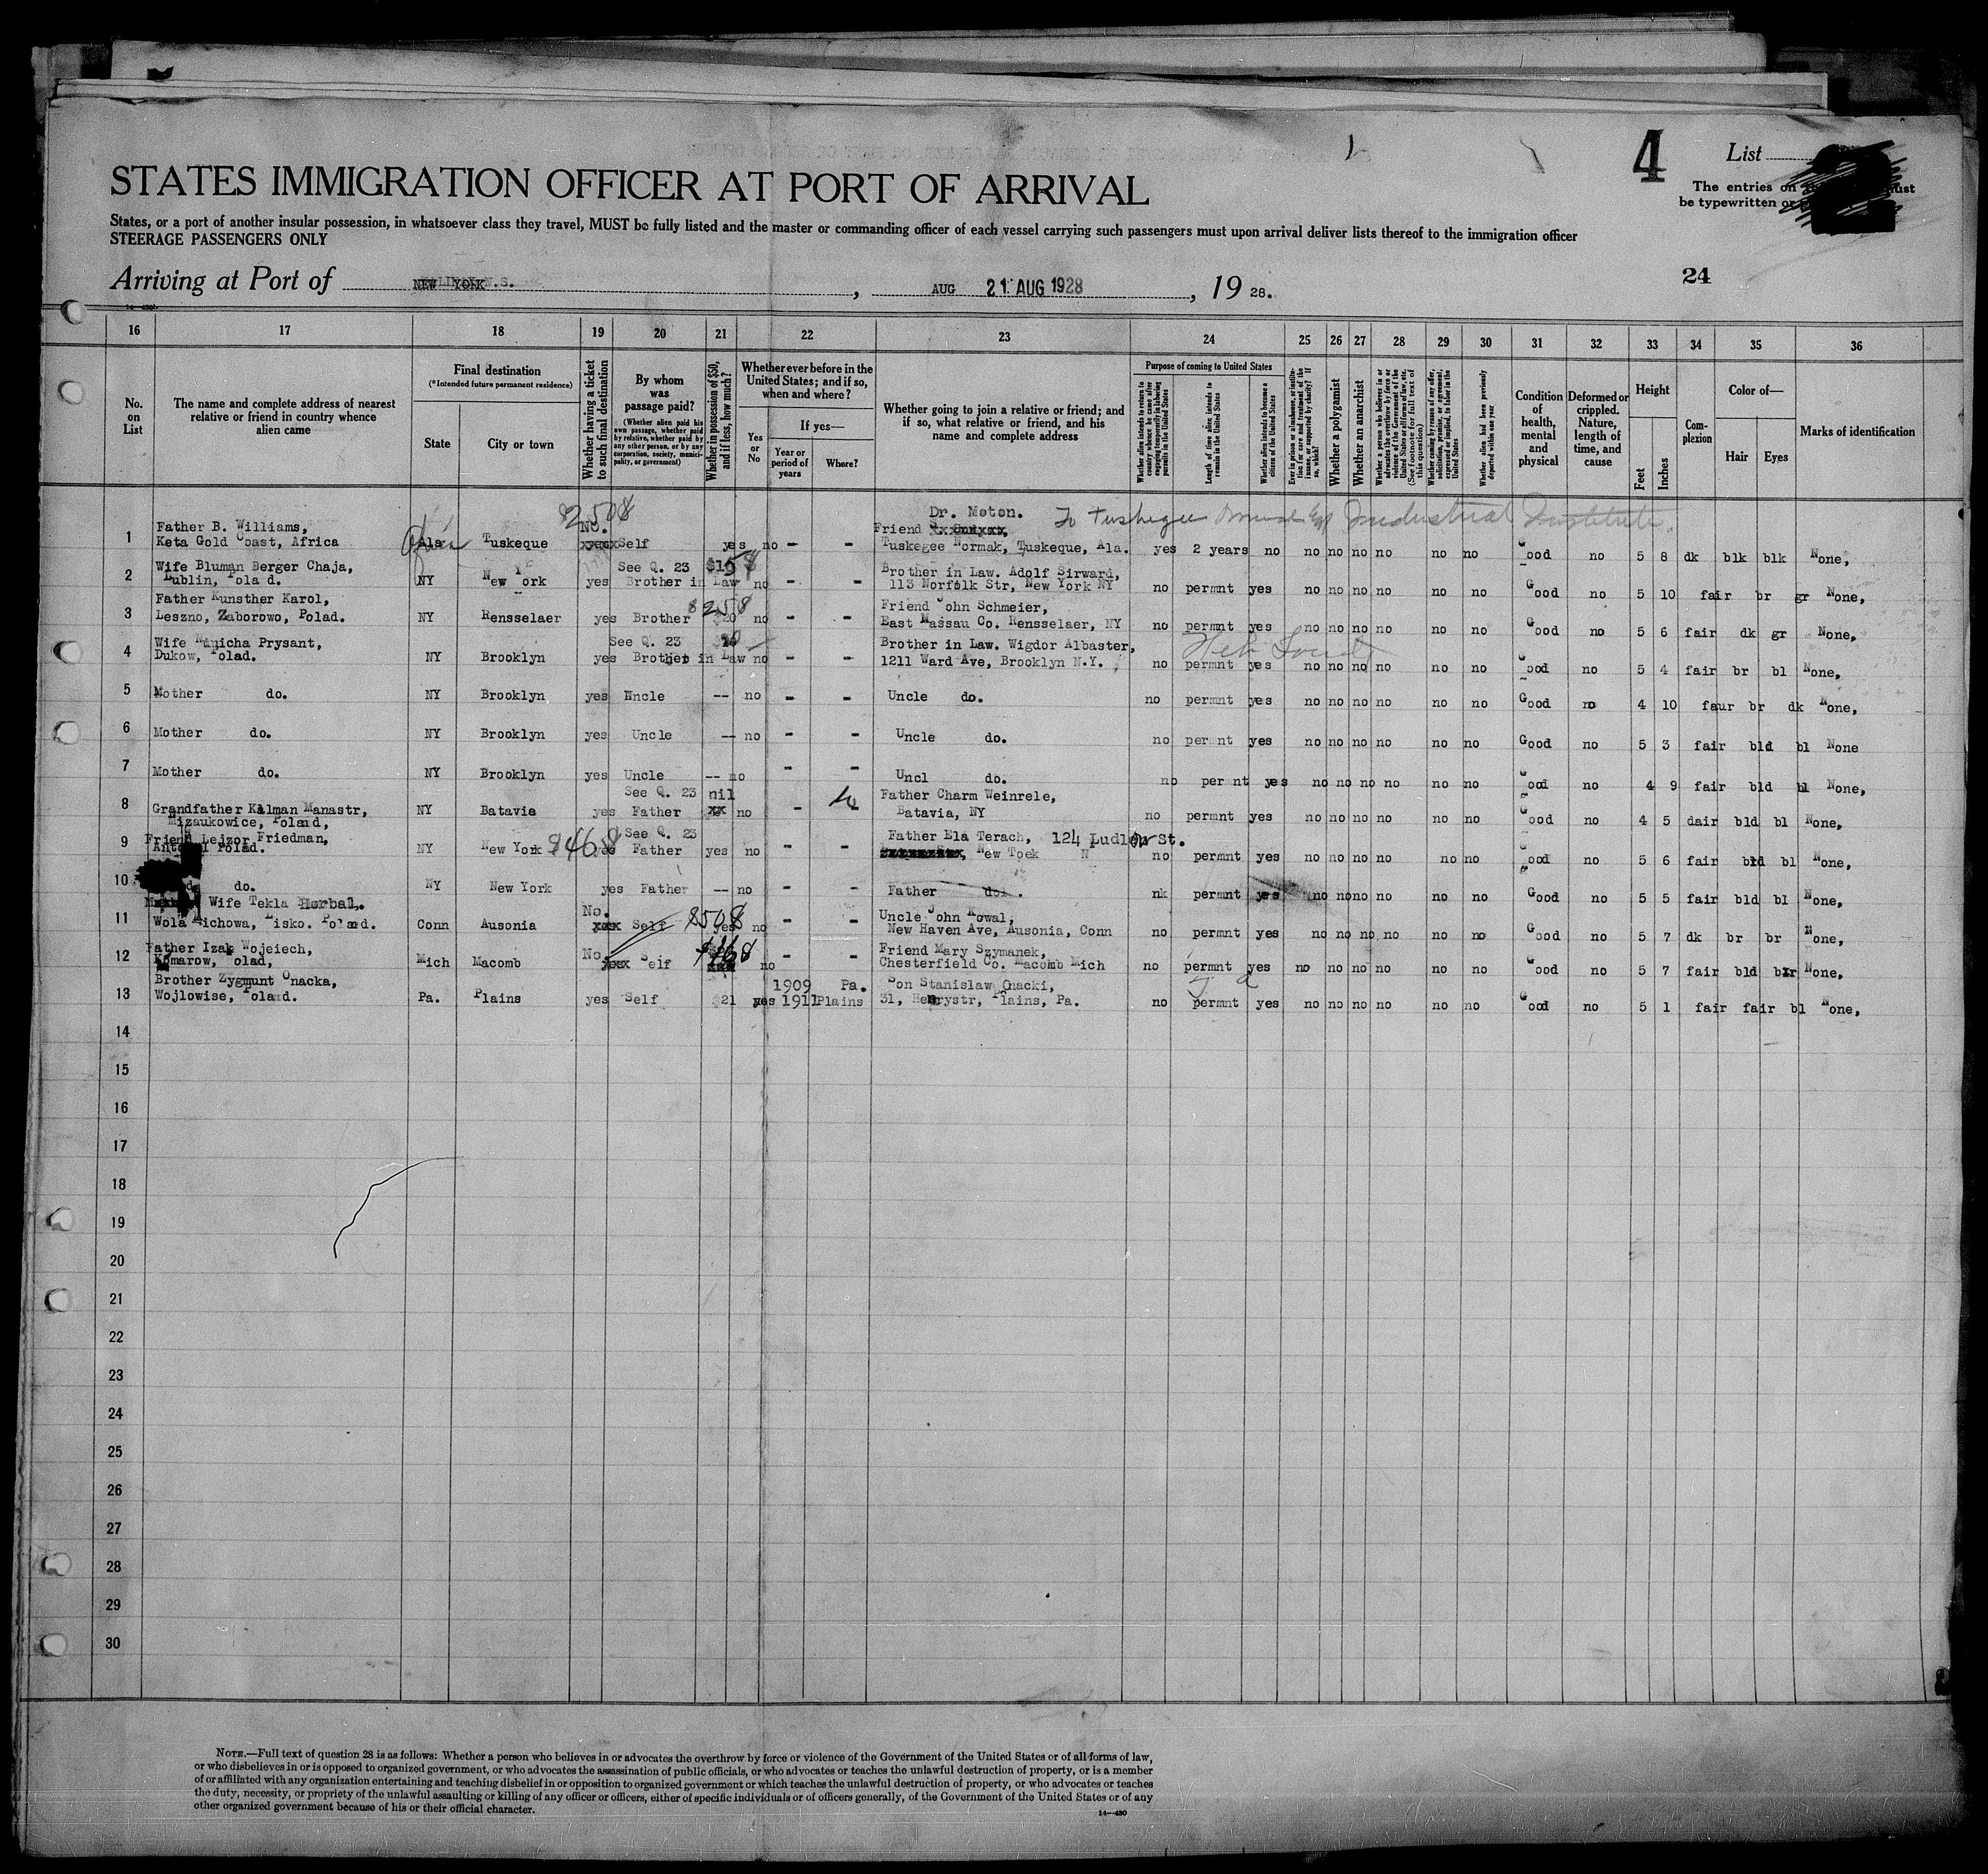 4
List
The entries on must
be typewritten or
STATES IMMIGRATION OFFICER AT PORT OF ARRIVAL
States, or a port of another insular possession, in whatsoever class they travel, MUST be fully listed and the master or commanding officer of each vessel carrying such passengers must upon arrival deliver lists thereof to the immigration officer
STEERAGE PASSENGERS ONLY
24
Arriving at Port of NEW YORK , AUG 21 AUG 1928 , 19 28.
16 17 18 19 20 21 22 23 24 25 26 27 28 29 30 31 32 33 34 35 36
No. on List
The name and complete address of nearest relative or friend in country whence alien came
Final destination
(*Intended future permanent residence)
State
City or town
Whether having a ticket to such final destination
By whom was passage paid?
(Whether alien paid his own passage, whether paid by relative, whether paid by any other person, or by any corporation, society, municipality, or government)
Whether in possession of $50, and if less, how much?
Whether ever before in the United States; and if so, when and where?
Yes or No
If yes—
Year or period of years
Where?
Whether going to join a relative or friend; and if so, what relative or friend, and his name and complete address
Purpose of coming to United States
Whether alien intends to return to country whence he came after engaging temporarily in laboring pursuits in the United States
Length of time alien intends to remain in the United States
Whether alien intends to become a citizen of the United States
Ever in prison or almshouse, or institution for care and treatment of the insane, or supported by charity? If so, which?
Whether a polygamist
Whether an anarchist
Whether a person who believes in or advocates the overthrow by force or violence of the Government of the United States or all forms of law, etc. (See footnote for full text of this question)
Whether coming by reason of any offer, solicitation, promise, or agreement, expressed or implied, to labor in the United States
Whether alien had been previously deported within one year
Condition of health, mental and physical
Deformed or crippled. Nature, length of time, and cause
Height
Feet
Inches
Complexion
Color of—
Hair
Eyes
Marks of identification
Dr. Moton. To Tuskegee Normal & Industrial Institute.
Father B. Williams, No. Friend
1 Keta Gold Coast, Africa Ala Tuskeque Self yes no - - Tuskegee Normak, Tuskeque, Ala. yes 2 years no no no no no no no Good no 5 8 dk blk blk None,
Wife Bluman Berger Chaja, See Q. 23 Brother in Law. Adolf Sirward,
2 Lublin, Pola d. NY New York yes Brother in Law no - - 113 Norfolk Str, New York NY no permnt yes no no no no no no Good no 5 10 fair br gr None,
Father Kunsther Karol, Friend John Schmeier,
3 Leszno, Zaborowo, Polad. NY Rensselaer yes Brother $20 no - - East Massau Co. Rensselaer, NY no permnt yes no no no no no no Good no 5 6 fair dk gr None,
Wife Manicha Prysant, See Q. 23 Brother in Law. Wigdor Albaster,
4 Dukow, Polad. NY Brooklyn yes Brother in Law no - - 1211 Ward Ave, Brooklyn N.Y. no permnt yes no no no no no no Good no 5 4 fair br bl None,
5 Mother do. NY Brooklyn yes Uncle -- no - - Uncle do. no permnt yes no no no no no no Good no 4 10 faur br dk None,
6 Mother do. NY Brooklyn yes Uncle -- no - - Uncle do. no permnt yes no no no no no no Good no 5 3 fair bld bl None
7 Mother do. NY Brooklyn yes Uncle -- no - - Uncl do. no per nt yes no no no no no no Good no 4 9 fair bld bl None,
See Q. 23 nil Father Charm Weinrele,
8 Grandfather Kalman Manastr, NY Batavia yes Father no - Batavia, NY no permnt yes no no no no no no Good no 4 5 dair bld bl None,
Mizaukowice, Poland,
Friend Lejzor Friedman, See Q. 23 Father Ela Terach, 124 Ludlow St.
9 Polad. NY New York yes Father yes no - - New Toek N no permnt yes no no no no no no Good no 5 6 fair bld bl None,
10 do. NY New York yes Father -- no - - Father do. nk permnt yes no no no no no no Good no 5 5 fair bld bl None,
Wife Tekla Horbal. No. Uncle John Kowal,
11 Wola Michowa, Lisko. Poland. Conn Ausonia Self yes no - - New Haven Ave, Ausonia, Conn no permnt yes no no no no no no Good no 5 7 dk br br None,
Father Izak Wojeiech, No. Friend Mary Szymanek,
12 Komarow, Polad, Mich Macomb Self no - - Chesterfield Co. Macomb Mich no permnt yes no no no no no no Good no 5 7 fair bld br None,
Brother Zygmunt Onacka, 1909 Pa. Son Stanislaw Onacki,
13 Wojlowise, Poland. Pa. Plains yes Self $21 yes 1911 Plains 31, Henrystr, Plains, Pa. no permnt yes no no no no no no Good no 5 1 fair fair bl None,
14
15
16
17
18
19
20
21
22
23
24
25
26
27
28
29
30
NOTE.—Full text of question 28 is as follows: Whether a person who believes in or advocates the overthrow by force or violence of the Government of the United States or of all forms of law,
or who disbelieves in or is opposed to organized government, or who advocates the assassination of public officials, or who advocates or teaches the unlawful destruction of property, or is a member
of or affiliated with any organization entertaining and teaching disbelief in or opposition to organized government or which teaches the unlawful destruction of property, or who advocates or teaches
the duty, necessity, or propriety of the unlawful assaulting or killing of any officer or officers, either of specific individuals or of officers generally, of the Government of the United States or of any
other organized government because of his or their official character.
14—430